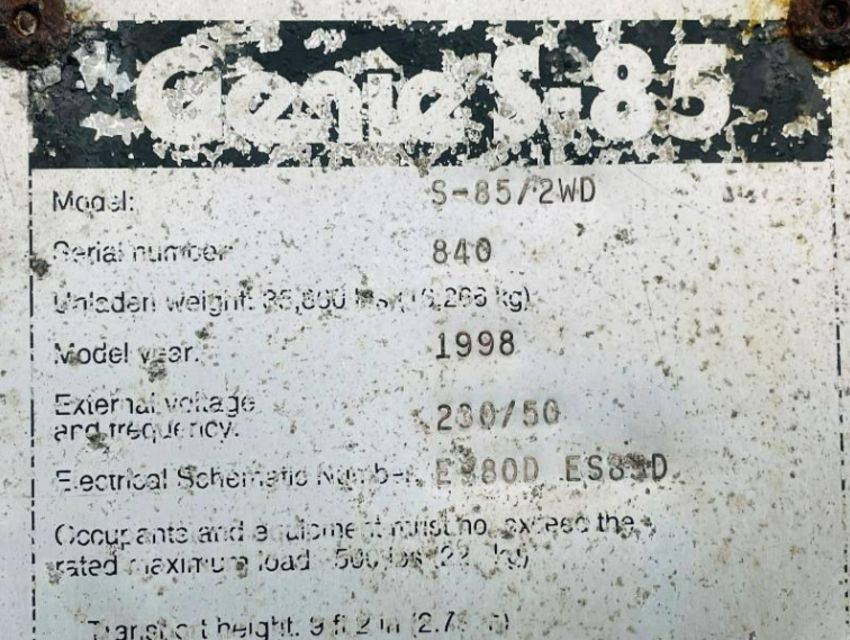 Genie S-85
Model: S-85/2WD
Serial number 840
Unladen weight:
Model year: 1998
External voltage
and frequency: 230/50
Electrical Schematic Number
Occupants and equipment must not exceed the
rated maximum load 500 lbs
Transport height: 9 ft 2 in